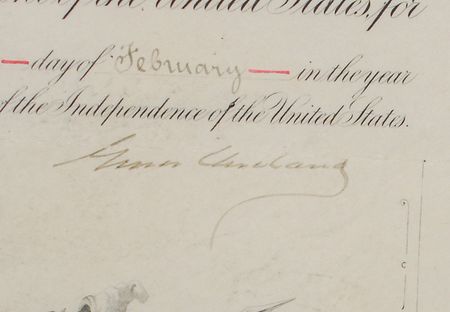 of the United States, for
day of February in the year
of the Independence of the United States.
Grover Cleveland